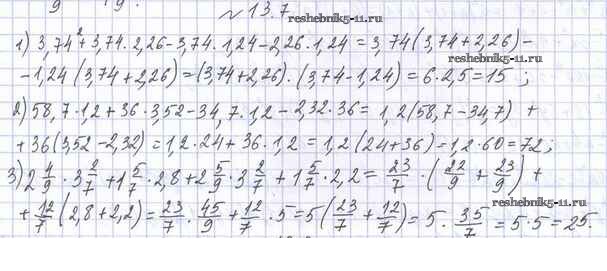 9 19.
№ 13.7 reshebnik5-11.ru
1) 3,74² + 3,74 · 2,26 - 3,74 · 1,24 - 2,26 · 1,24 = 3,74 (3,74 + 2,26) -
- 1,24 (3,74 + 2,26) = (3,74 + 2,26) · (3,74 - 1,24) = 6 · 2,5 = 15 ;
reshebnik5-11.ru
2) 58,7 · 1,2 + 36 · 3,52 - 34,7 · 1,2 - 2,32 · 36 = 1,2 (58,7 - 34,7) +
+ 36 (3,52 - 2,32) = 1,2 · 24 + 36 · 1,2 = 1,2 (24 + 36) = 1,2 · 60 = 72 ;
3) 2 4/9 · 3 2/7 + 1 5/7 · 2,8 + 2 5/9 · 3 2/7 + 1 5/7 · 2,2 = 23/7 · (22/9 + 23/9) +
+ 12/7 (2,8 + 2,2) = 23/7 · 45/9 + 12/7 · 5 = 5 (23/7 + 12/7) = 5 · 35/7 = 5 · 5 = 25.
reshebnik5-11.ru